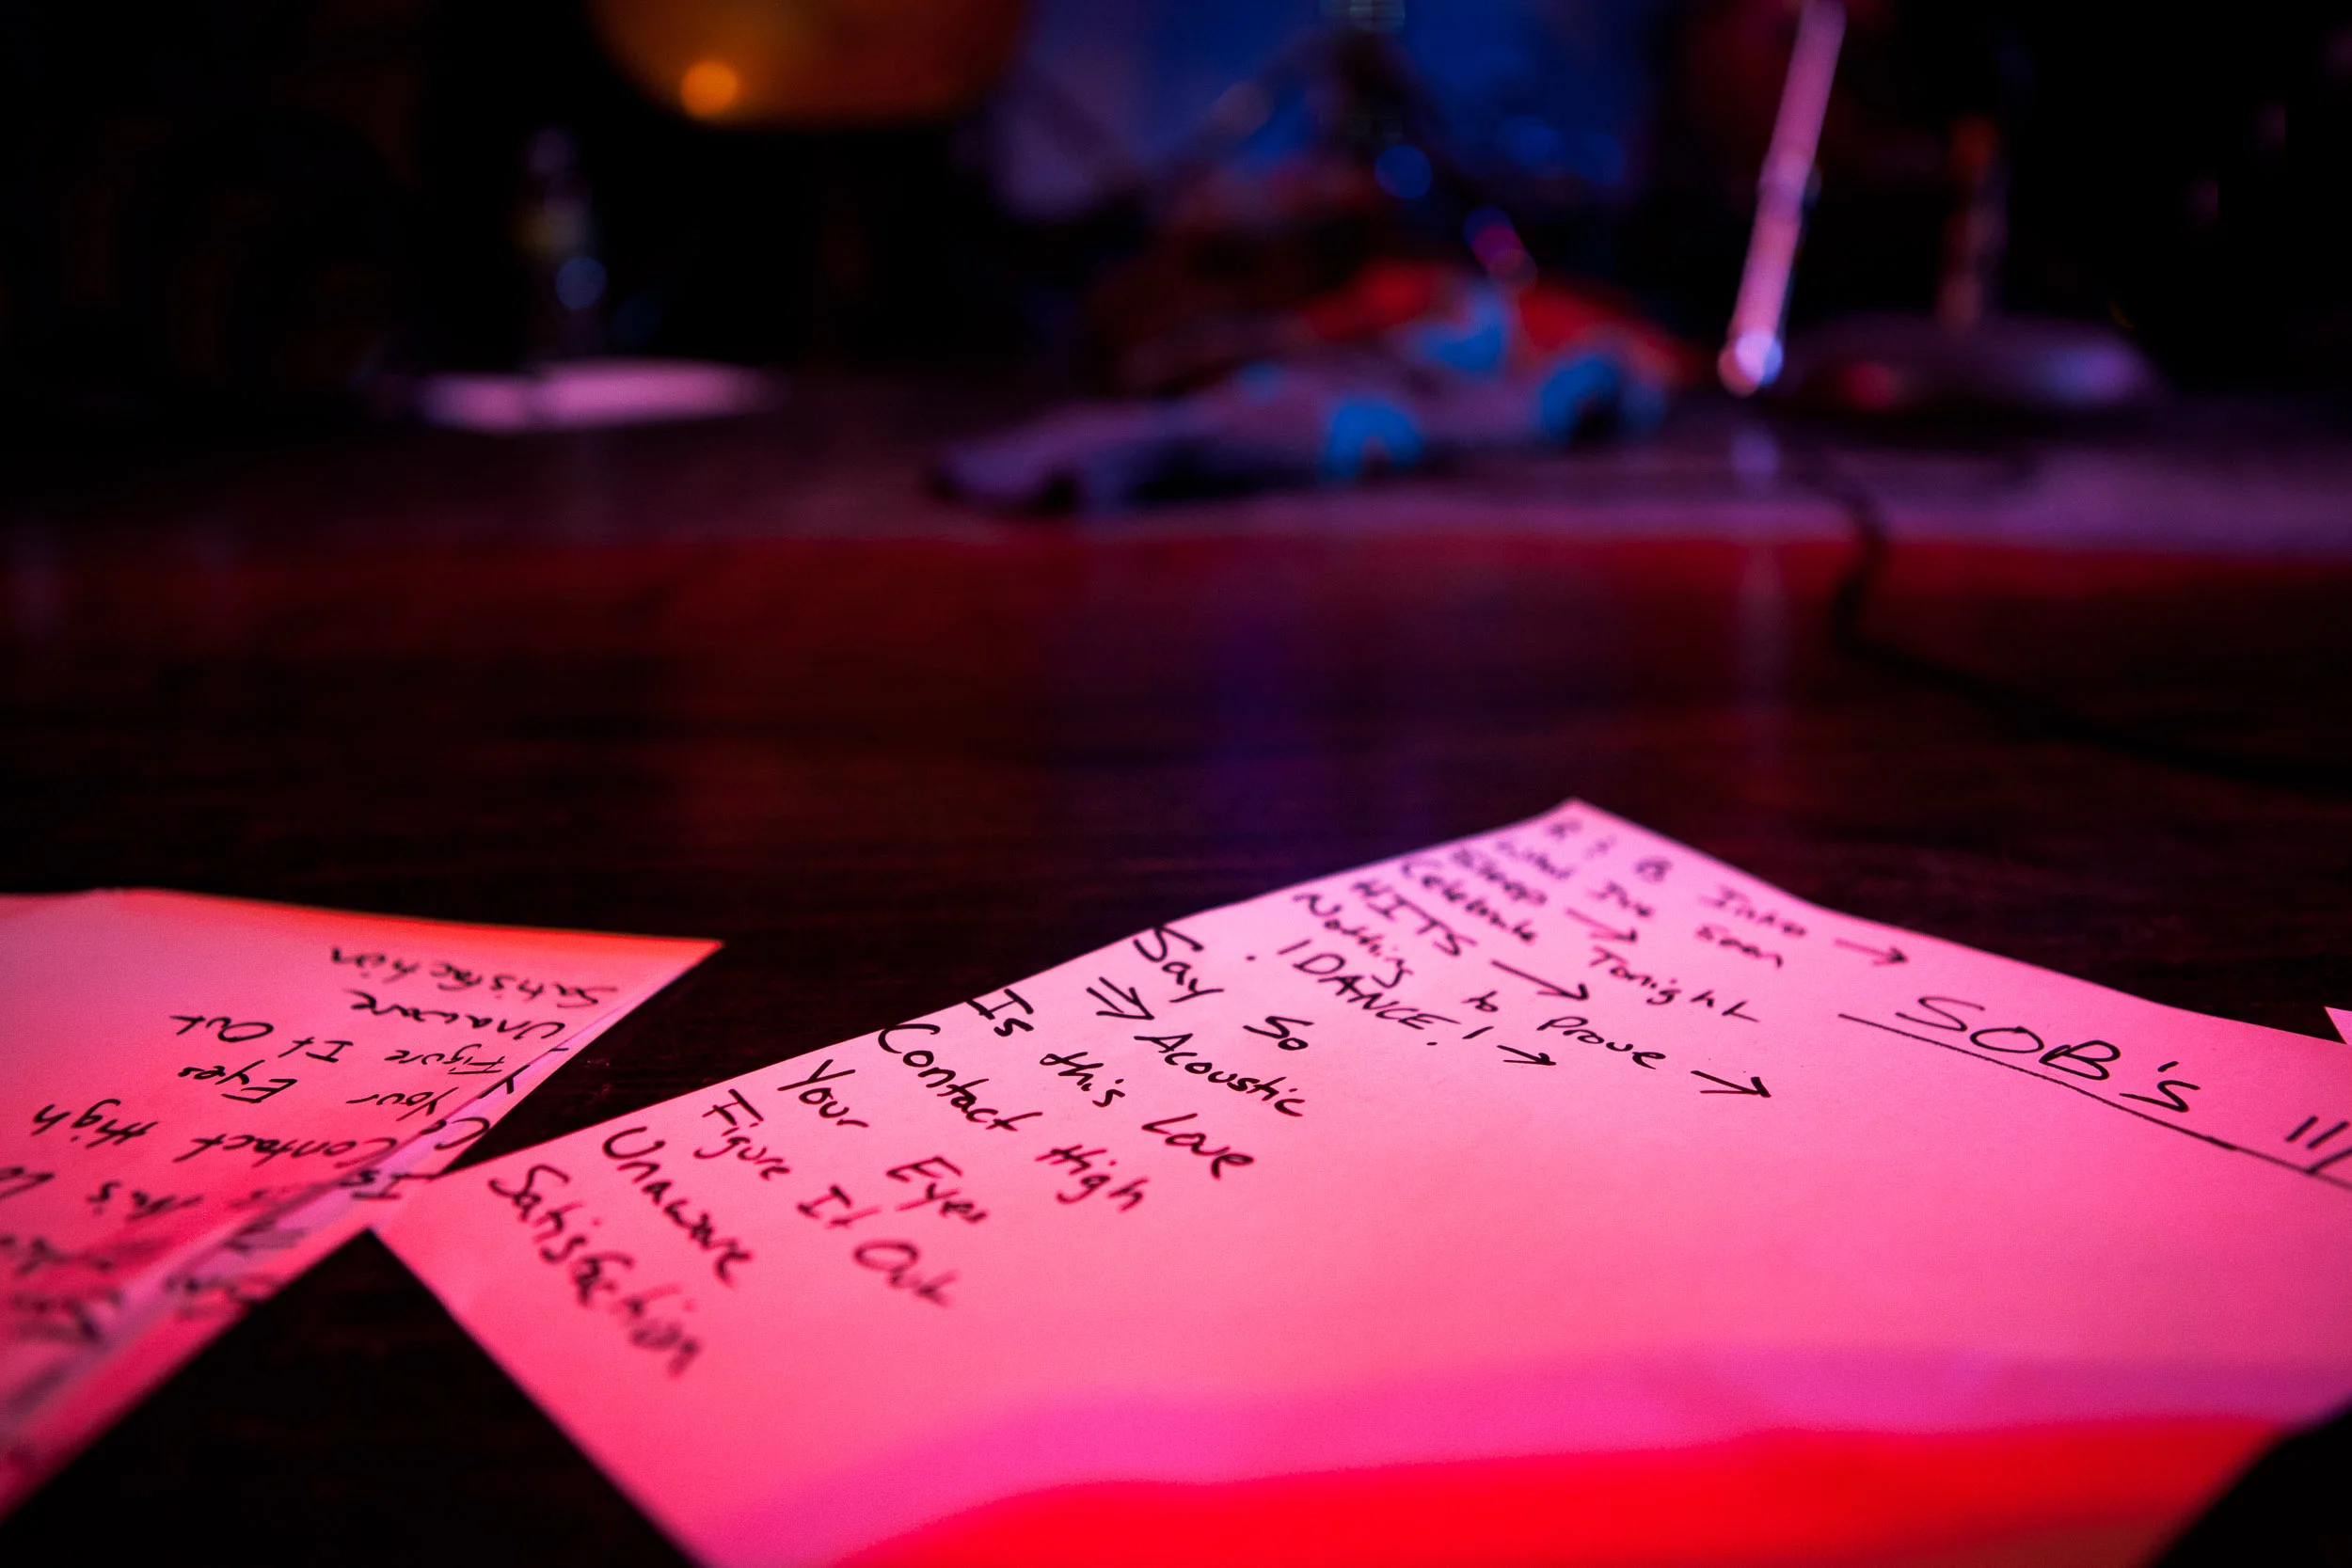 SOB's 11/
R & B Intro →
What I've Seen
Sleep →
Celebrate Tonight
HITS →
Nothing to Prove →
. ! DANCE ! →
Say So
⇒ Acoustic
Is this Love
Contact High
Your Eyes
Figure It Out
Unaware
Satisfaction
Satisfaction
Unaware
Figure It Out
Your Eyes
Contact High
Is this Lo